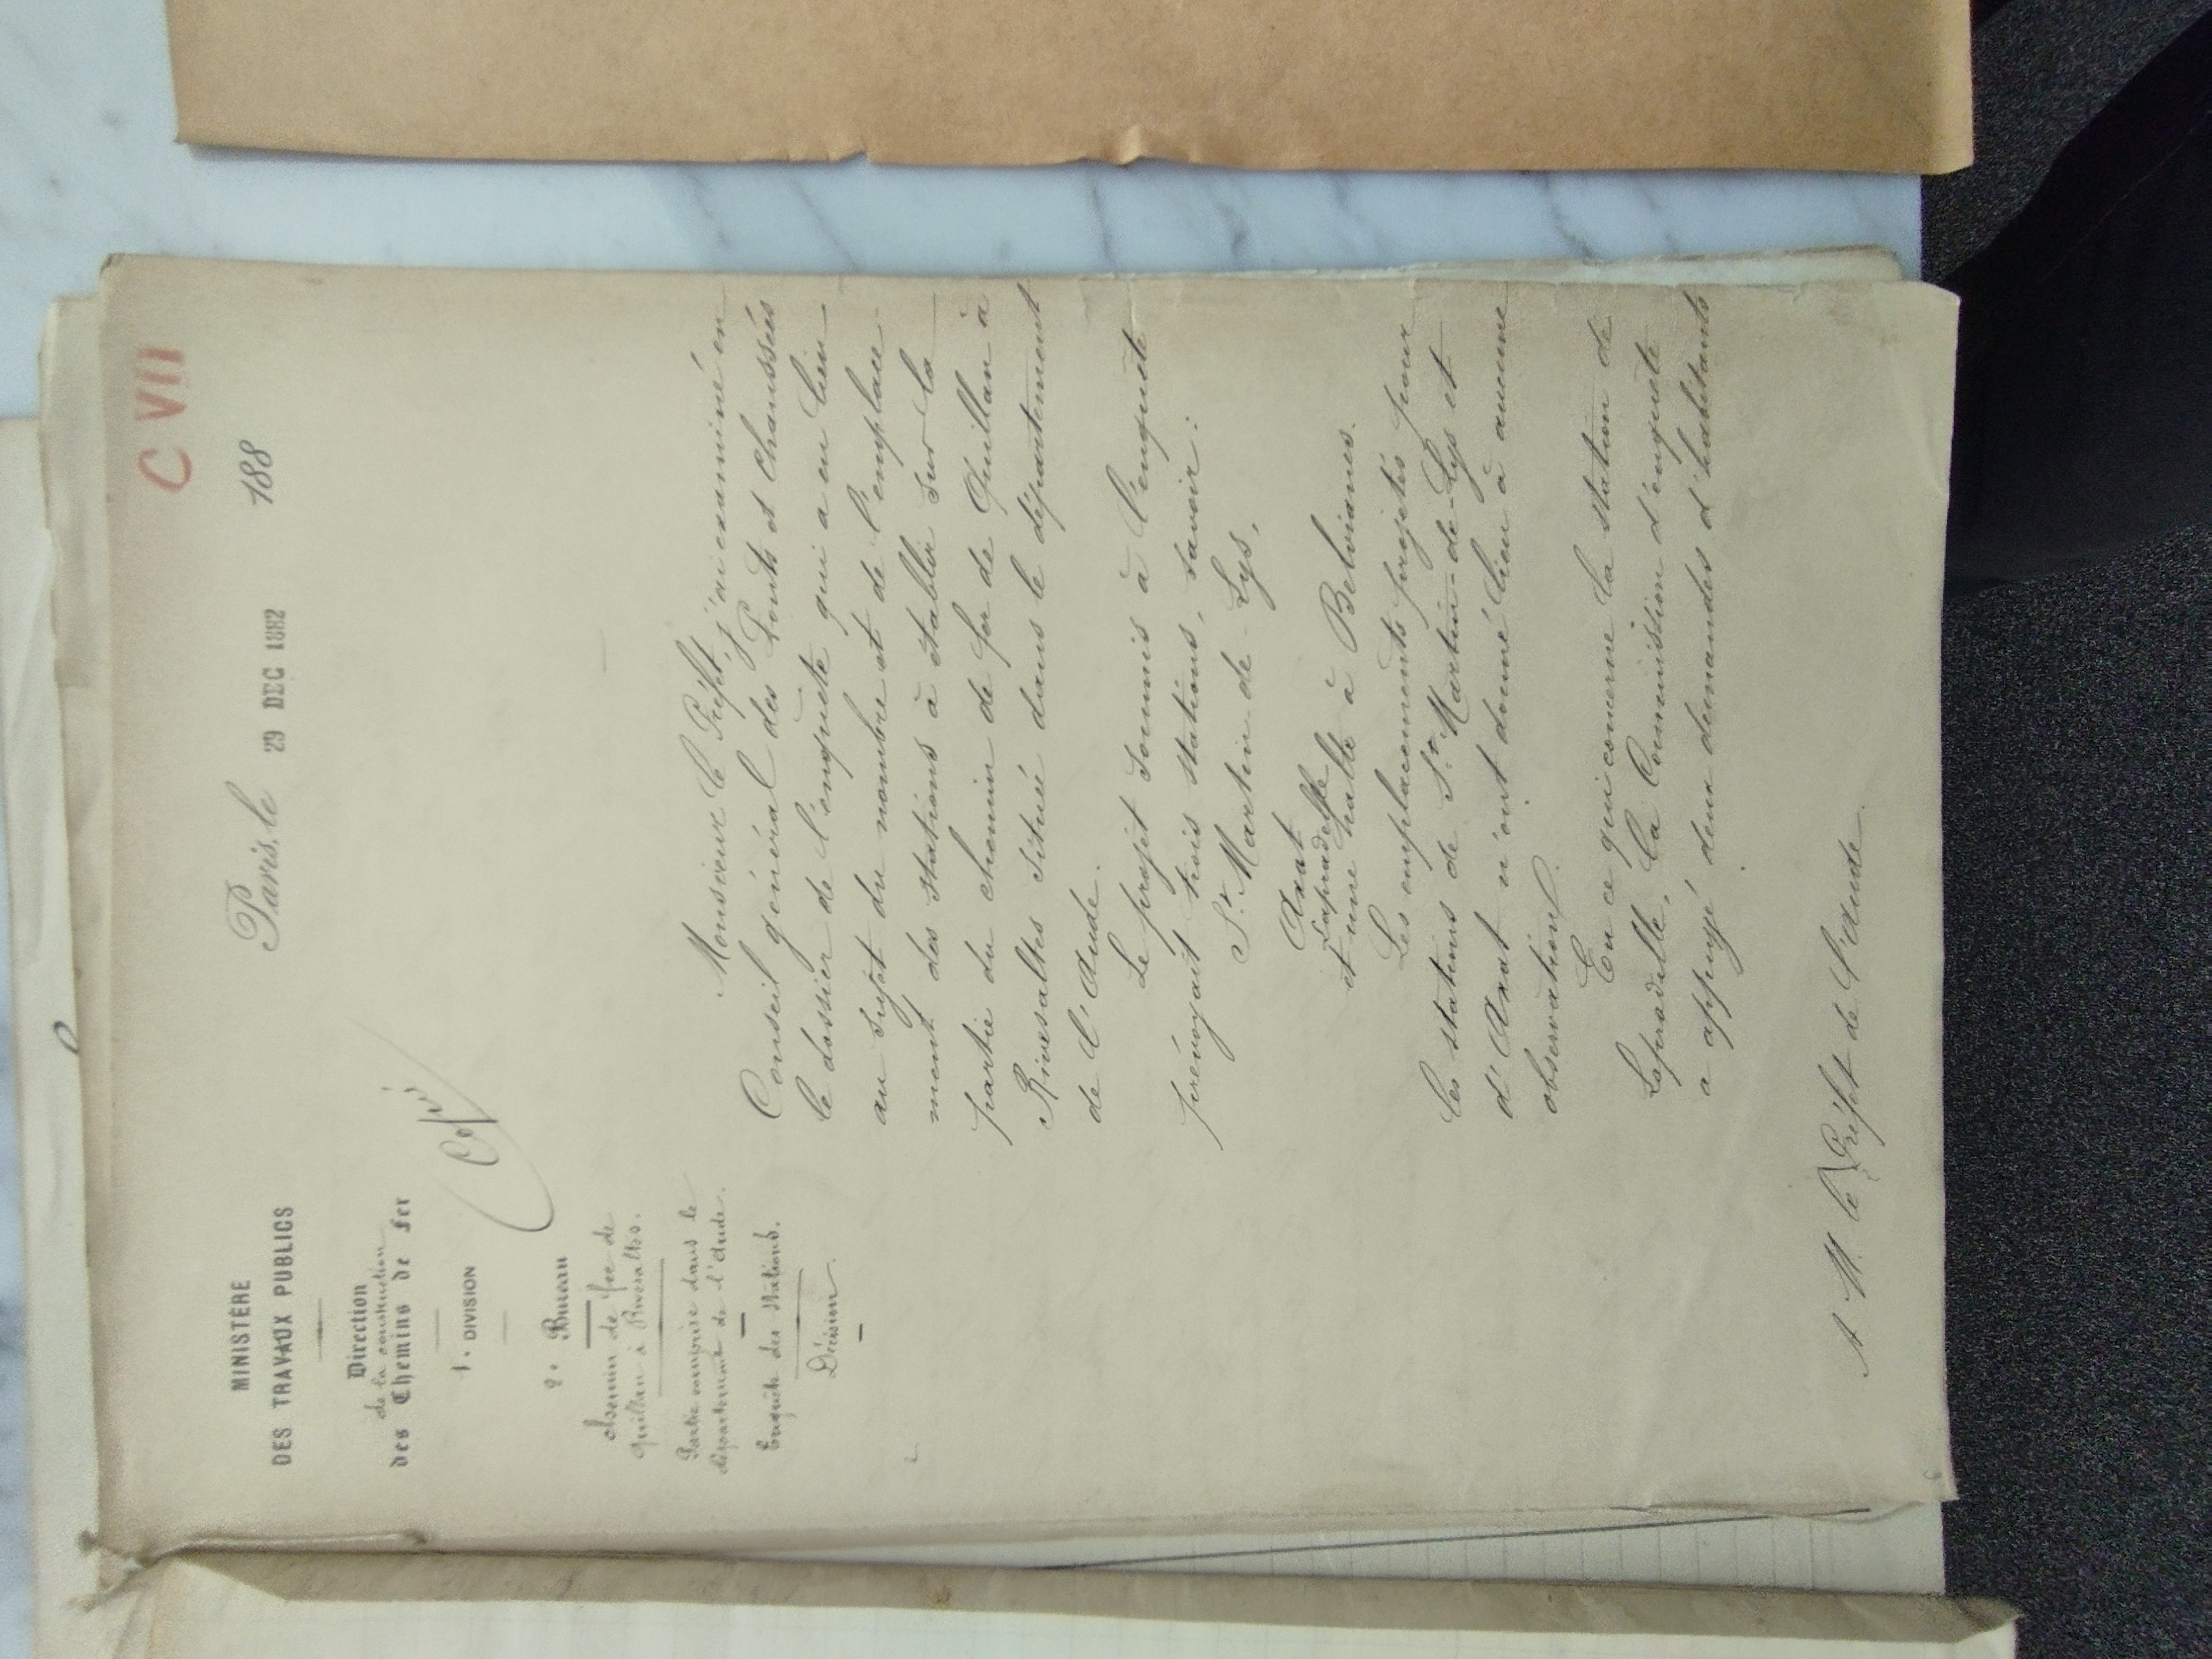 C VII
MINISTÈRE
DES TRAVAUX PUBLICS
Direction
de la construction
des Chemins de fer
1e DIVISION
2e Bureau
chemin de fer de
Quillan à Rivesaltes.
Partie comprise dans le
département de l'Aude.
Enquête des stations.
Décision.
Paris, le 29 DEC 1882 188
Copié
Monsieur le Préfet, j'ai examiné en
Conseil général des Ponts et Chaussées
le dossier de l'enquête qui a eu lieu
au sujet du nombre et de l'emplace-
ment des stations à établir sur la
partie du chemin de fer de Quillan à
Rivesaltes située dans le département
de l'Aude.
Le projet soumis à l'enquête
prévoyait trois stations, savoir :
St. Martin-de-Lys,
Axat
Lapradelle
et une halte à Belvianes.
Les emplacements projetés pour
les stations de St. Martin-de-Lys et
d'Axat n'ont donné lieu à aucune
observation.
En ce qui concerne la station de
Lapradelle, la Commission d'enquête
a appuyé deux demandes d'habitants
A M. le Préfet de l'Aude.